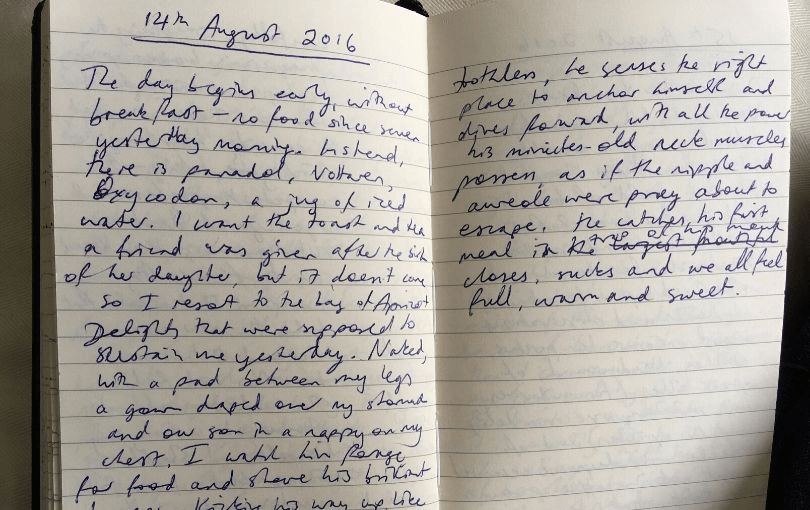 14th August 2016
The day begins early, without
breakfast – no food since seven
yesterday morning. Instead,
there is panadol, Voltaren,
Oxycodon, a jug of iced
water. I want the toast and tea
a friend was given after the birth
of her daughter, but it doesn't come
so I resort to the bag of Apricot
Delights that were supposed to
sustain me yesterday. Naked,
with a pad between my legs
a gown draped over my stomach
and our son in a nappy on my
chest. I watch him forage
for food and shove his brilliant
his way up, like
toothless, he senses the right
place to anchor himself and
dives forward, with all the power
his minutes-old neck muscles
possess, as if the nipple and
aureole were prey about to
escape. He catches, his first
meal in the trap of his mouth
closes, sucks and we all feel
full, warm and sweet.